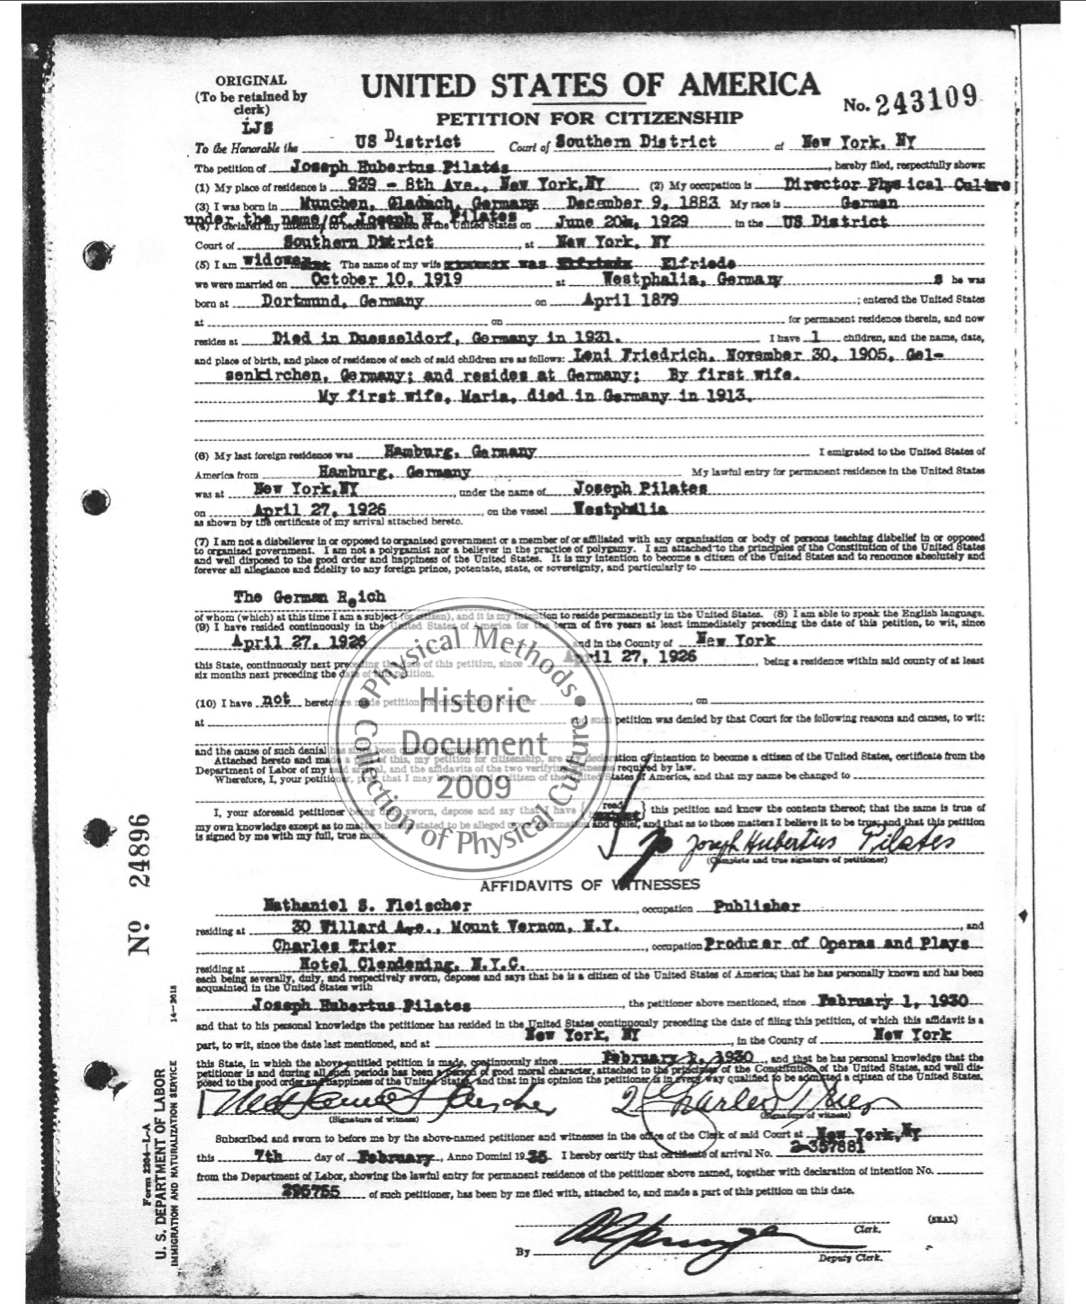 ORIGINAL
(To be retained by
clerk)
LJS
UNITED STATES OF AMERICA
PETITION FOR CITIZENSHIP
No. 243109
To the Honorable the US District Court of Southern District at New York, NY
The petition of Joseph Hubertus Pilates, hereby filed, respectfully shows:
(1) My place of residence is 939 - 8th Ave., New York, NY (2) My occupation is Director Physical Culture
(3) I was born in Munchen, Gladbach, Germany December 9, 1883 My race is German
under the name/of Joseph H. Pilates
(4) I declared my intention to become a citizen of the United States on June 20th, 1929 in the US District
Court of Southern District, at New York, NY
(5) I am widower The name of my wife was Elfriede
we were married on October 10, 1919 at Westphalia, Germany s he was
born at Dortmund, Germany on April 1879; entered the United States
at on for permanent residence therein, and now
resides at Died in Duesseldorf, Germany in 1931. I have 1 children, and the name, date,
and place of birth, and place of residence of each of said children are as follows: Leni Friedrich, November 30, 1905, Gel-
senkirchen, Germany; and resides at Germany; By first wife.
My first wife, Maria, died in Germany in 1913.
(6) My last foreign residence was Hamburg, Germany I emigrated to the United States of
America from Hamburg, Germany My lawful entry for permanent residence in the United States
was at New York, NY, under the name of Joseph Pilates
on April 27, 1926, on the vessel Westphalia
as shown by the certificate of my arrival attached hereto.
(7) I am not a disbeliever in or opposed to organized government or a member of or affiliated with any organization or body of persons teaching disbelief in or opposed
to organized government. I am not a polygamist nor a believer in the practice of polygamy. I am attached to the principles of the Constitution of the United States
and well disposed to the good order and happiness of the United States. It is my intention to become a citizen of the United States and to renounce absolutely and
forever all allegiance and fidelity to any foreign prince, potentate, state, or sovereignty, and particularly to
The German Reich
of whom (which) at this time I am a subject (or citizen), and it is my intention to reside permanently in the United States. (8) I am able to speak the English language.
(9) I have resided continuously in the United States of America for the term of five years at least immediately preceding the date of this petition, to wit, since
April 27, 1926 and in the County of New York
this State, continuously next preceding the date of this petition, since April 27, 1926, being a residence within said county of at least
six months next preceding the date of this petition.
(10) I have not heretofore made petition for citizenship: Number , on
at such petition was denied by that Court for the following reasons and causes, to wit:
and the cause of such denial has
Attached hereto and made a part of this, my petition for citizenship, are my declaration of intention to become a citizen of the United States, certificate from the
Department of Labor of my said arrival, and the affidavits of the two verifying witnesses required by law.
Wherefore, I, your petitioner, pray that I may be admitted a citizen of the United States of America, and that my name be changed to
I, your aforesaid petitioner being duly sworn, depose and say that I have read this petition and know the contents thereof; that the same is true of
my own knowledge except as to matters herein stated to be alleged upon information and belief, and that as to those matters I believe it to be true; and that this petition
is signed by me with my full, true name.
Joseph Hubertus Pilates
(Complete and true signature of petitioner)
Physical Methods
Historic
Document
2009
Collection of Physical Culture
AFFIDAVITS OF WITNESSES
Nathaniel S. Fleischer, occupation Publisher
residing at 30 Willard Ave., Mount Vernon, N.Y., and
Charles Trier, occupation Producer of Operas and Plays
residing at Hotel Clendening, N.Y.C.
each being severally, duly, and respectively sworn, deposes and says that he is a citizen of the United States of America; that he has personally known and has been
acquainted in the United States with
Joseph Hubertus Pilates, the petitioner above mentioned, since February 1, 1930
and that to his personal knowledge the petitioner has resided in the United States continuously preceding the date of filing this petition, of which this affidavit is a
part, to wit, since the date last mentioned, and at New York, NY, in the County of New York
this State, in which the above-entitled petition is made, continuously since February 1, 1930, and that he has personal knowledge that the
petitioner is and during all such periods has been a person of good moral character, attached to the principles of the Constitution of the United States, and well dis-
posed to the good order and happiness of the United States, and that in his opinion the petitioner is in every way qualified to be admitted a citizen of the United States.
Nathaniel S. Fleischer
2 Charles Trier
(Signature of witness)
(Signature of witness)
Subscribed and sworn to before me by the above-named petitioner and witnesses in the office of the Clerk of said Court at New York, NY
this 7th day of February, Anno Domini 1935. I hereby certify that certificate of arrival No. 2-357881
from the Department of Labor, showing the lawful entry for permanent residence of the petitioner above named, together with declaration of intention No.
295755 of such petitioner, has been by me filed with, attached to, and made a part of this petition on this date.
Clerk.
(SEAL)
By
Deputy Clerk.
Nº 24896
14-2618
Form 2204-L-A
U. S. DEPARTMENT OF LABOR
IMMIGRATION AND NATURALIZATION SERVICE